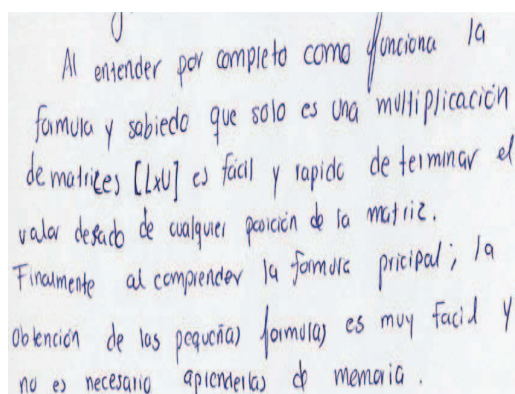 Al entender por completo como funciona la
formula y sabiedo que solo es una multiplicación
de matrices [LxU] es fácil y rapido de terminar el
valor desado de cualquier posición de la matriz.
Finalmente al comprender la formula pricipal; la
obtención de las pequeñas formulas es muy facil y
no es necesario aprenderlas de memoria.